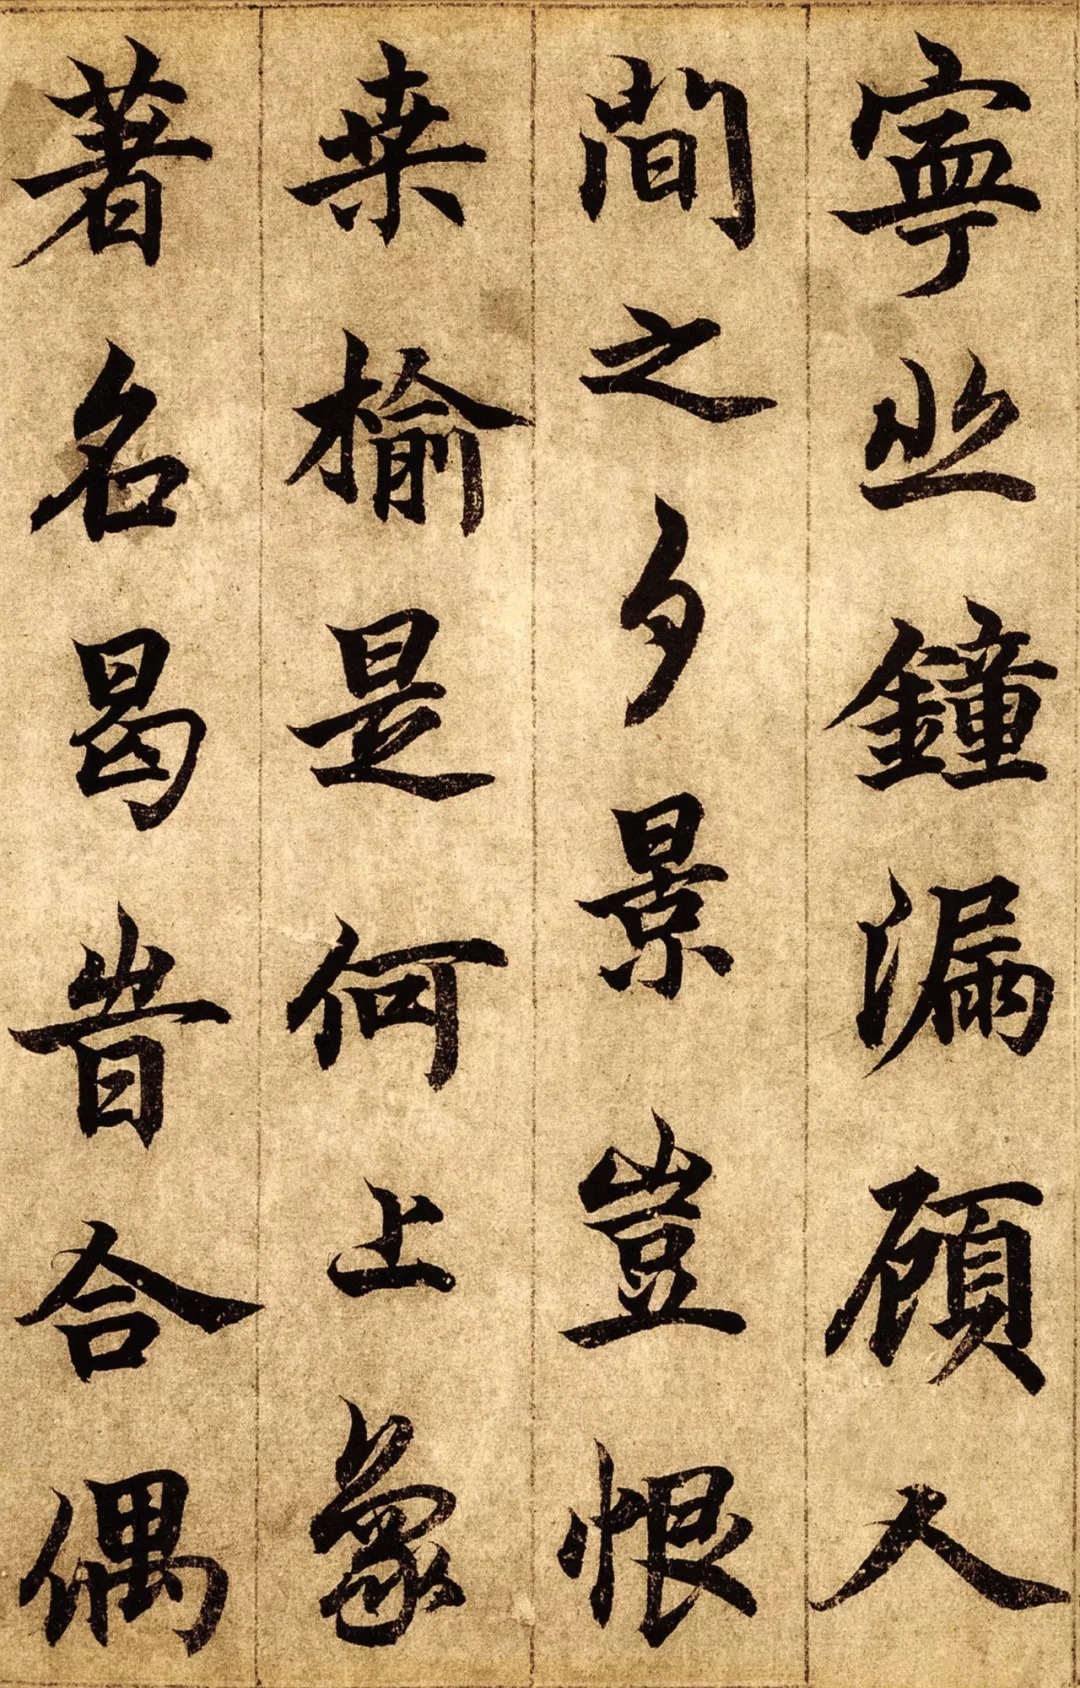 寧鐘漏顧人
間之夕景豈恨
桒榆是何上象
著名曷昔合偶